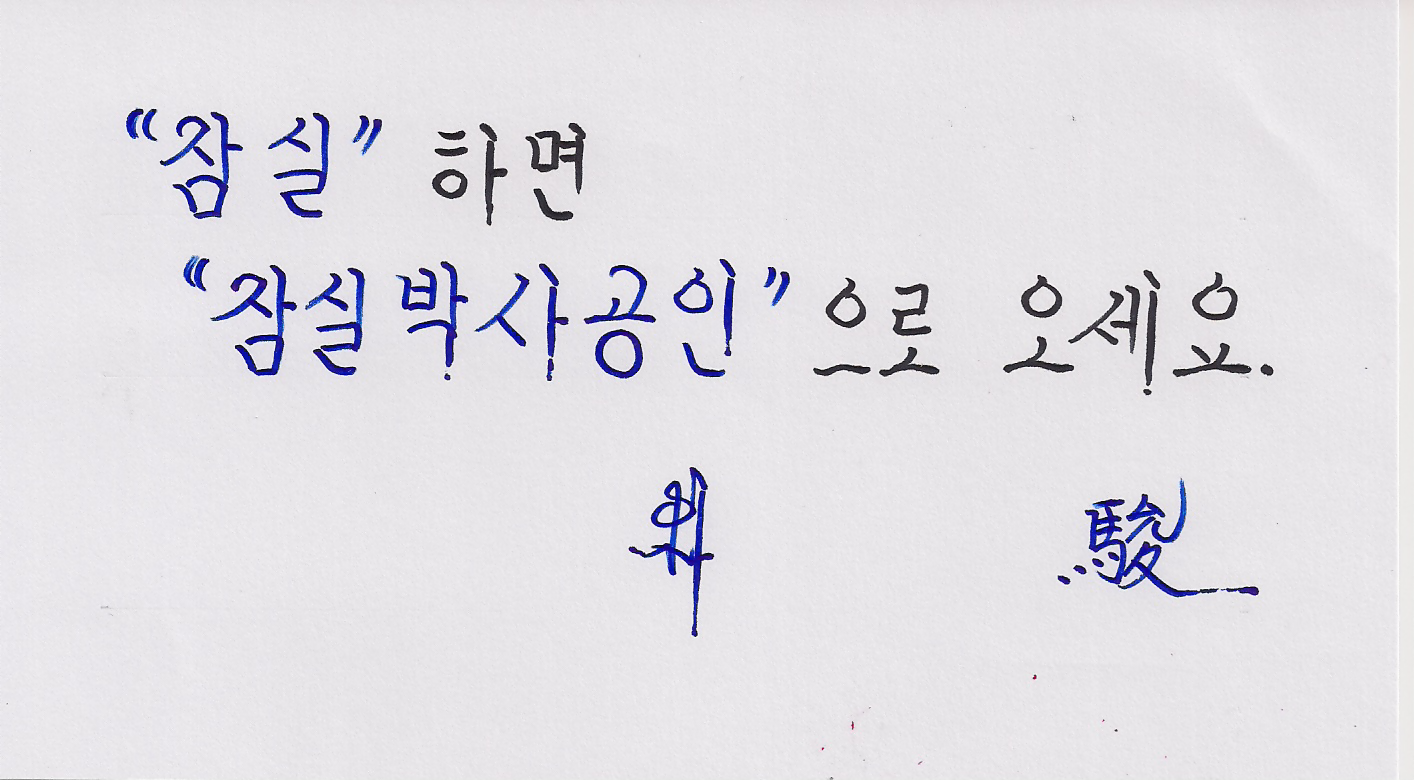 “잠실” 하면
“잠실박사공인”으로 오세요.
駿